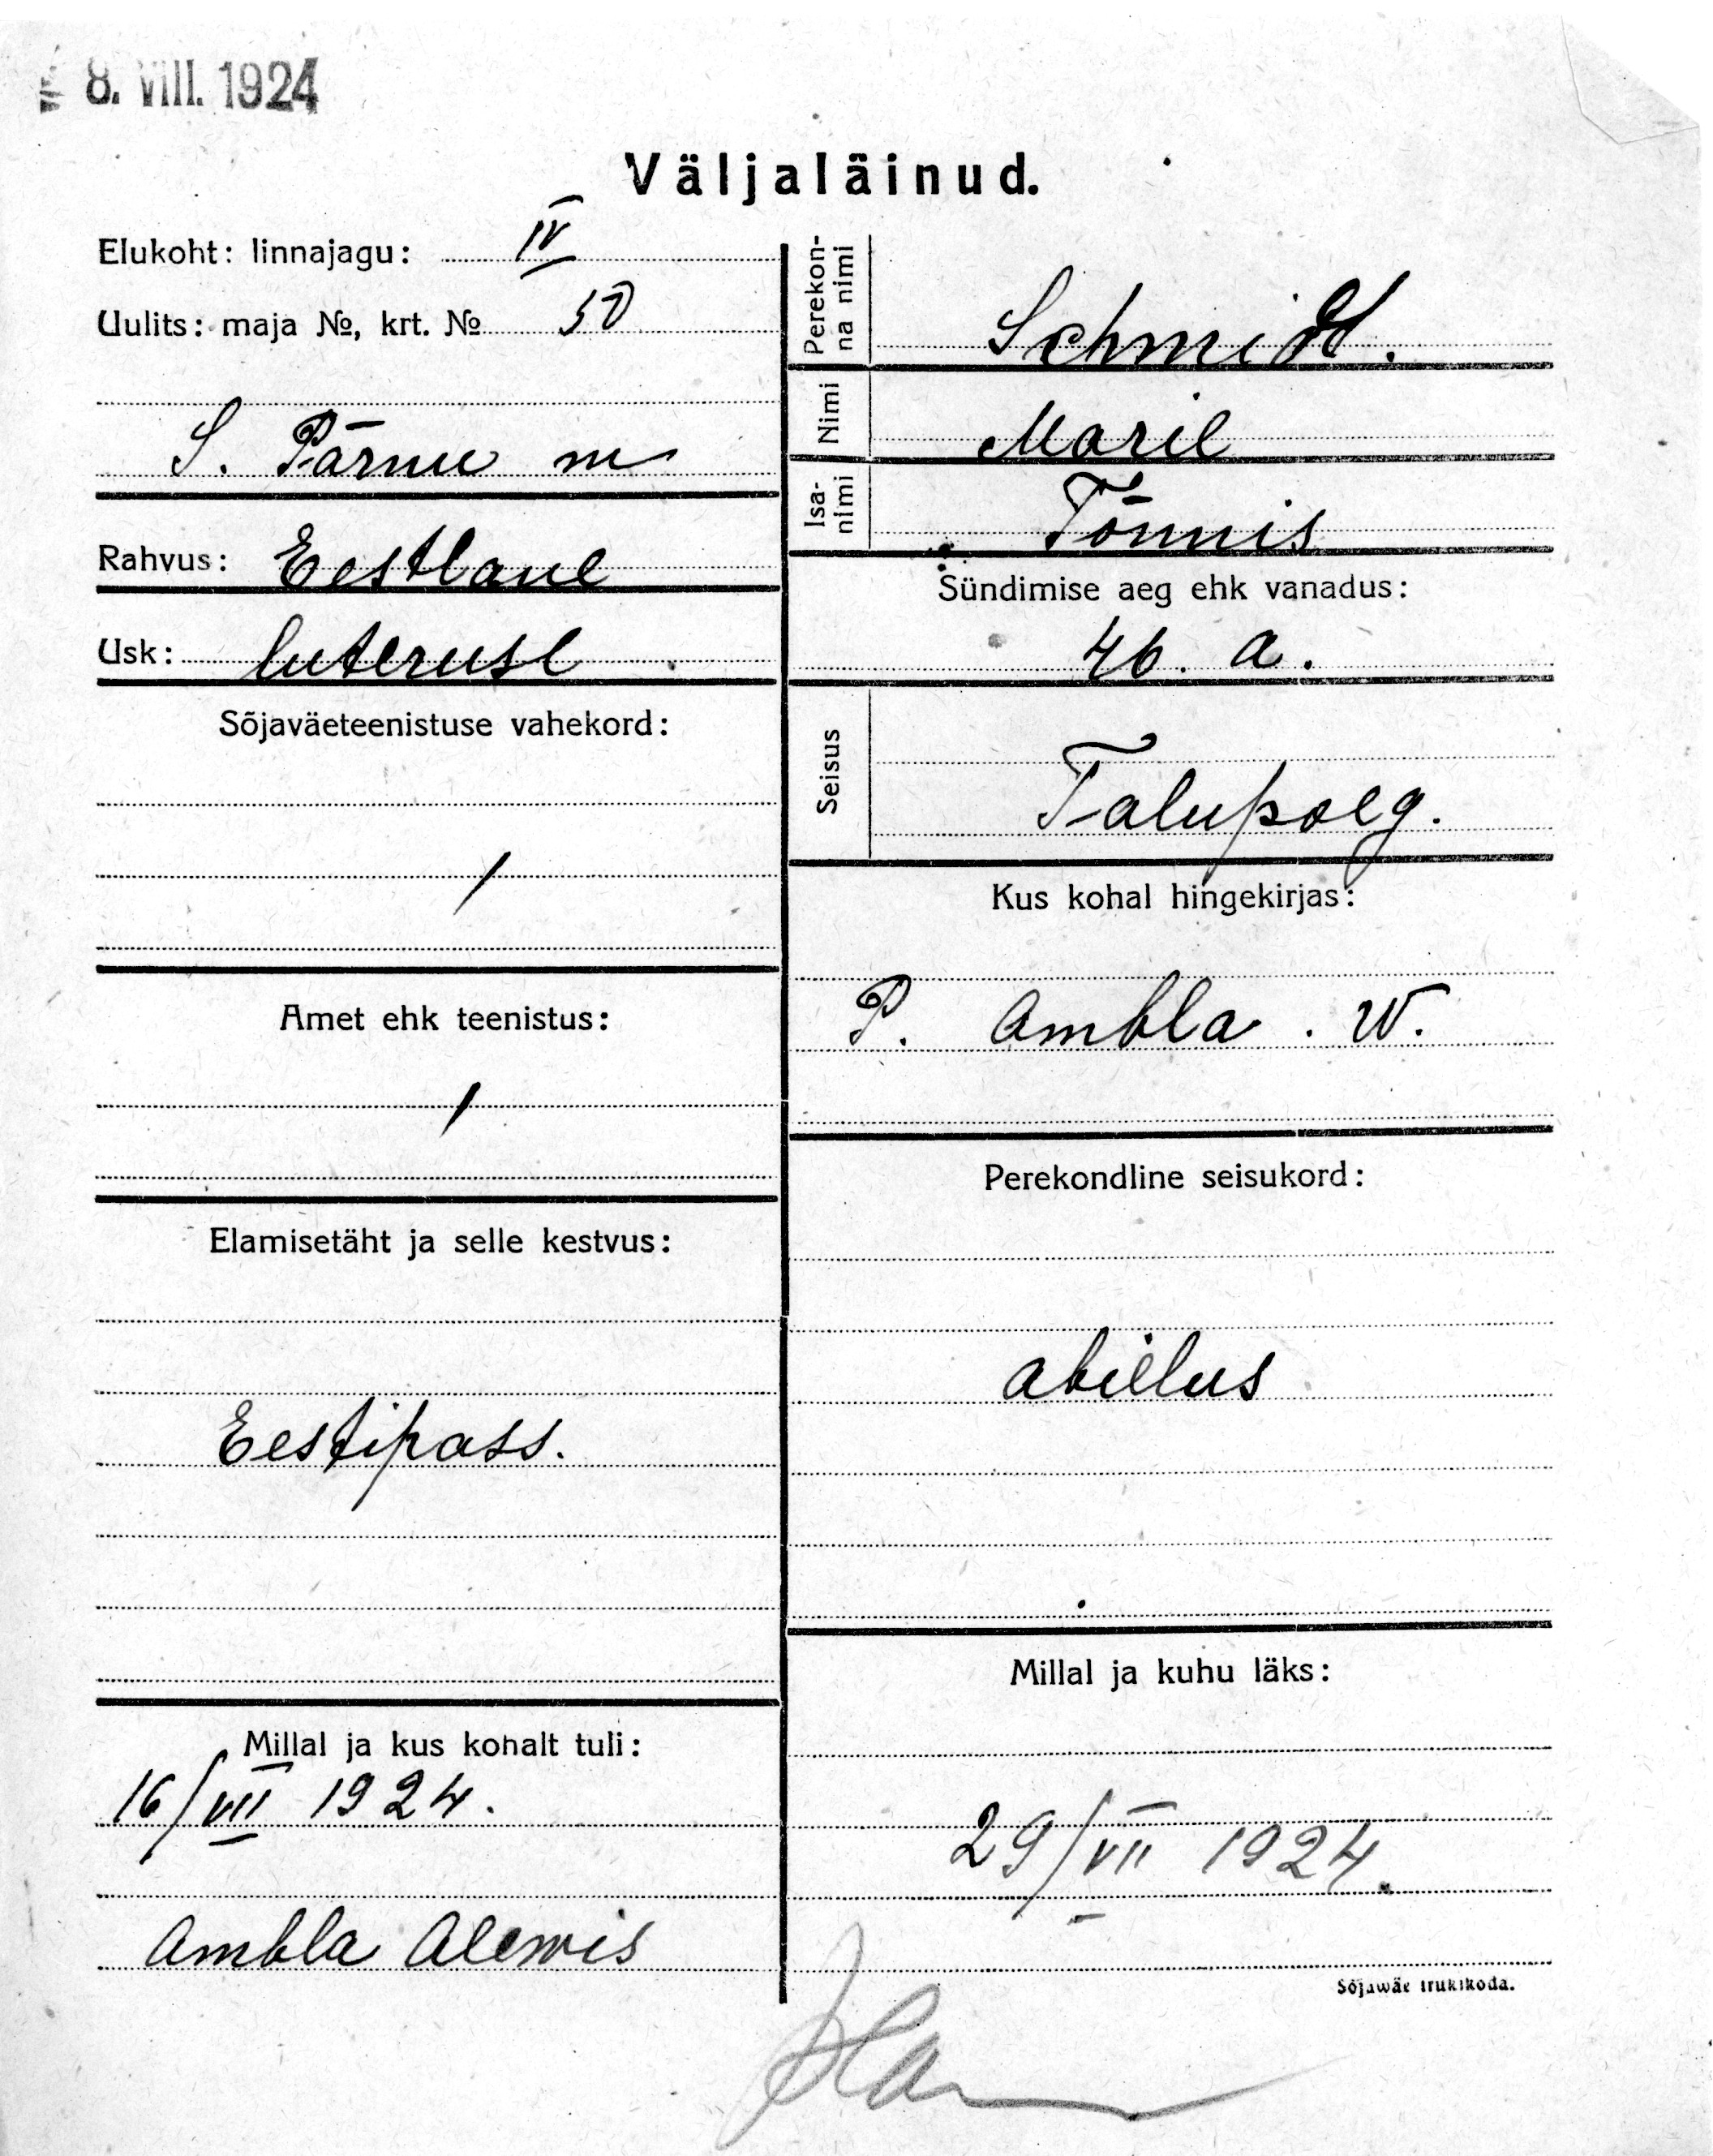 8. VIII. 1924
Väljaläinud.
Elukoht: linnajagu: IV
Uulits: maja №, krt. № 50
S. Pärnu m
Rahvus: Eestlane
Usk: luteruse
Sõjaväeteenistuse vahekord:
/
Amet ehk teenistus:
/
Elamisetäht ja selle kestvus:
Eestipass.
Millal ja kus kohalt tuli:
16/VII 1924.
Ambla Alewis
Perekon-
na nimi
Schmidt.
Nimi
Marie
Isa-
nimi
Tõnnis
Sündimise aeg ehk vanadus:
46. a.
Seisus
Talupoeg.
Kus kohal hingekirjas:
P. Ambla . W.
Perekondline seisukord:
abielus
Millal ja kuhu läks:
29/VII 1924.
Sõjawäe trükikoda.